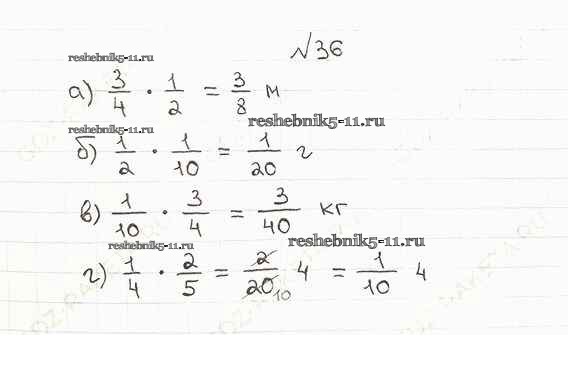 №36
reshebnik5-11.ru
а) 3/4 · 1/2 = 3/8 м
reshebnik5-11.ru
reshebnik5-11.ru
б) 1/2 · 1/10 = 1/20 г
в) 1/10 · 3/4 = 3/40 кг
reshebnik5-11.ru
reshebnik5-11.ru
г) 1/4 · 2/5 = 2/20 10 ч = 1/10 ч